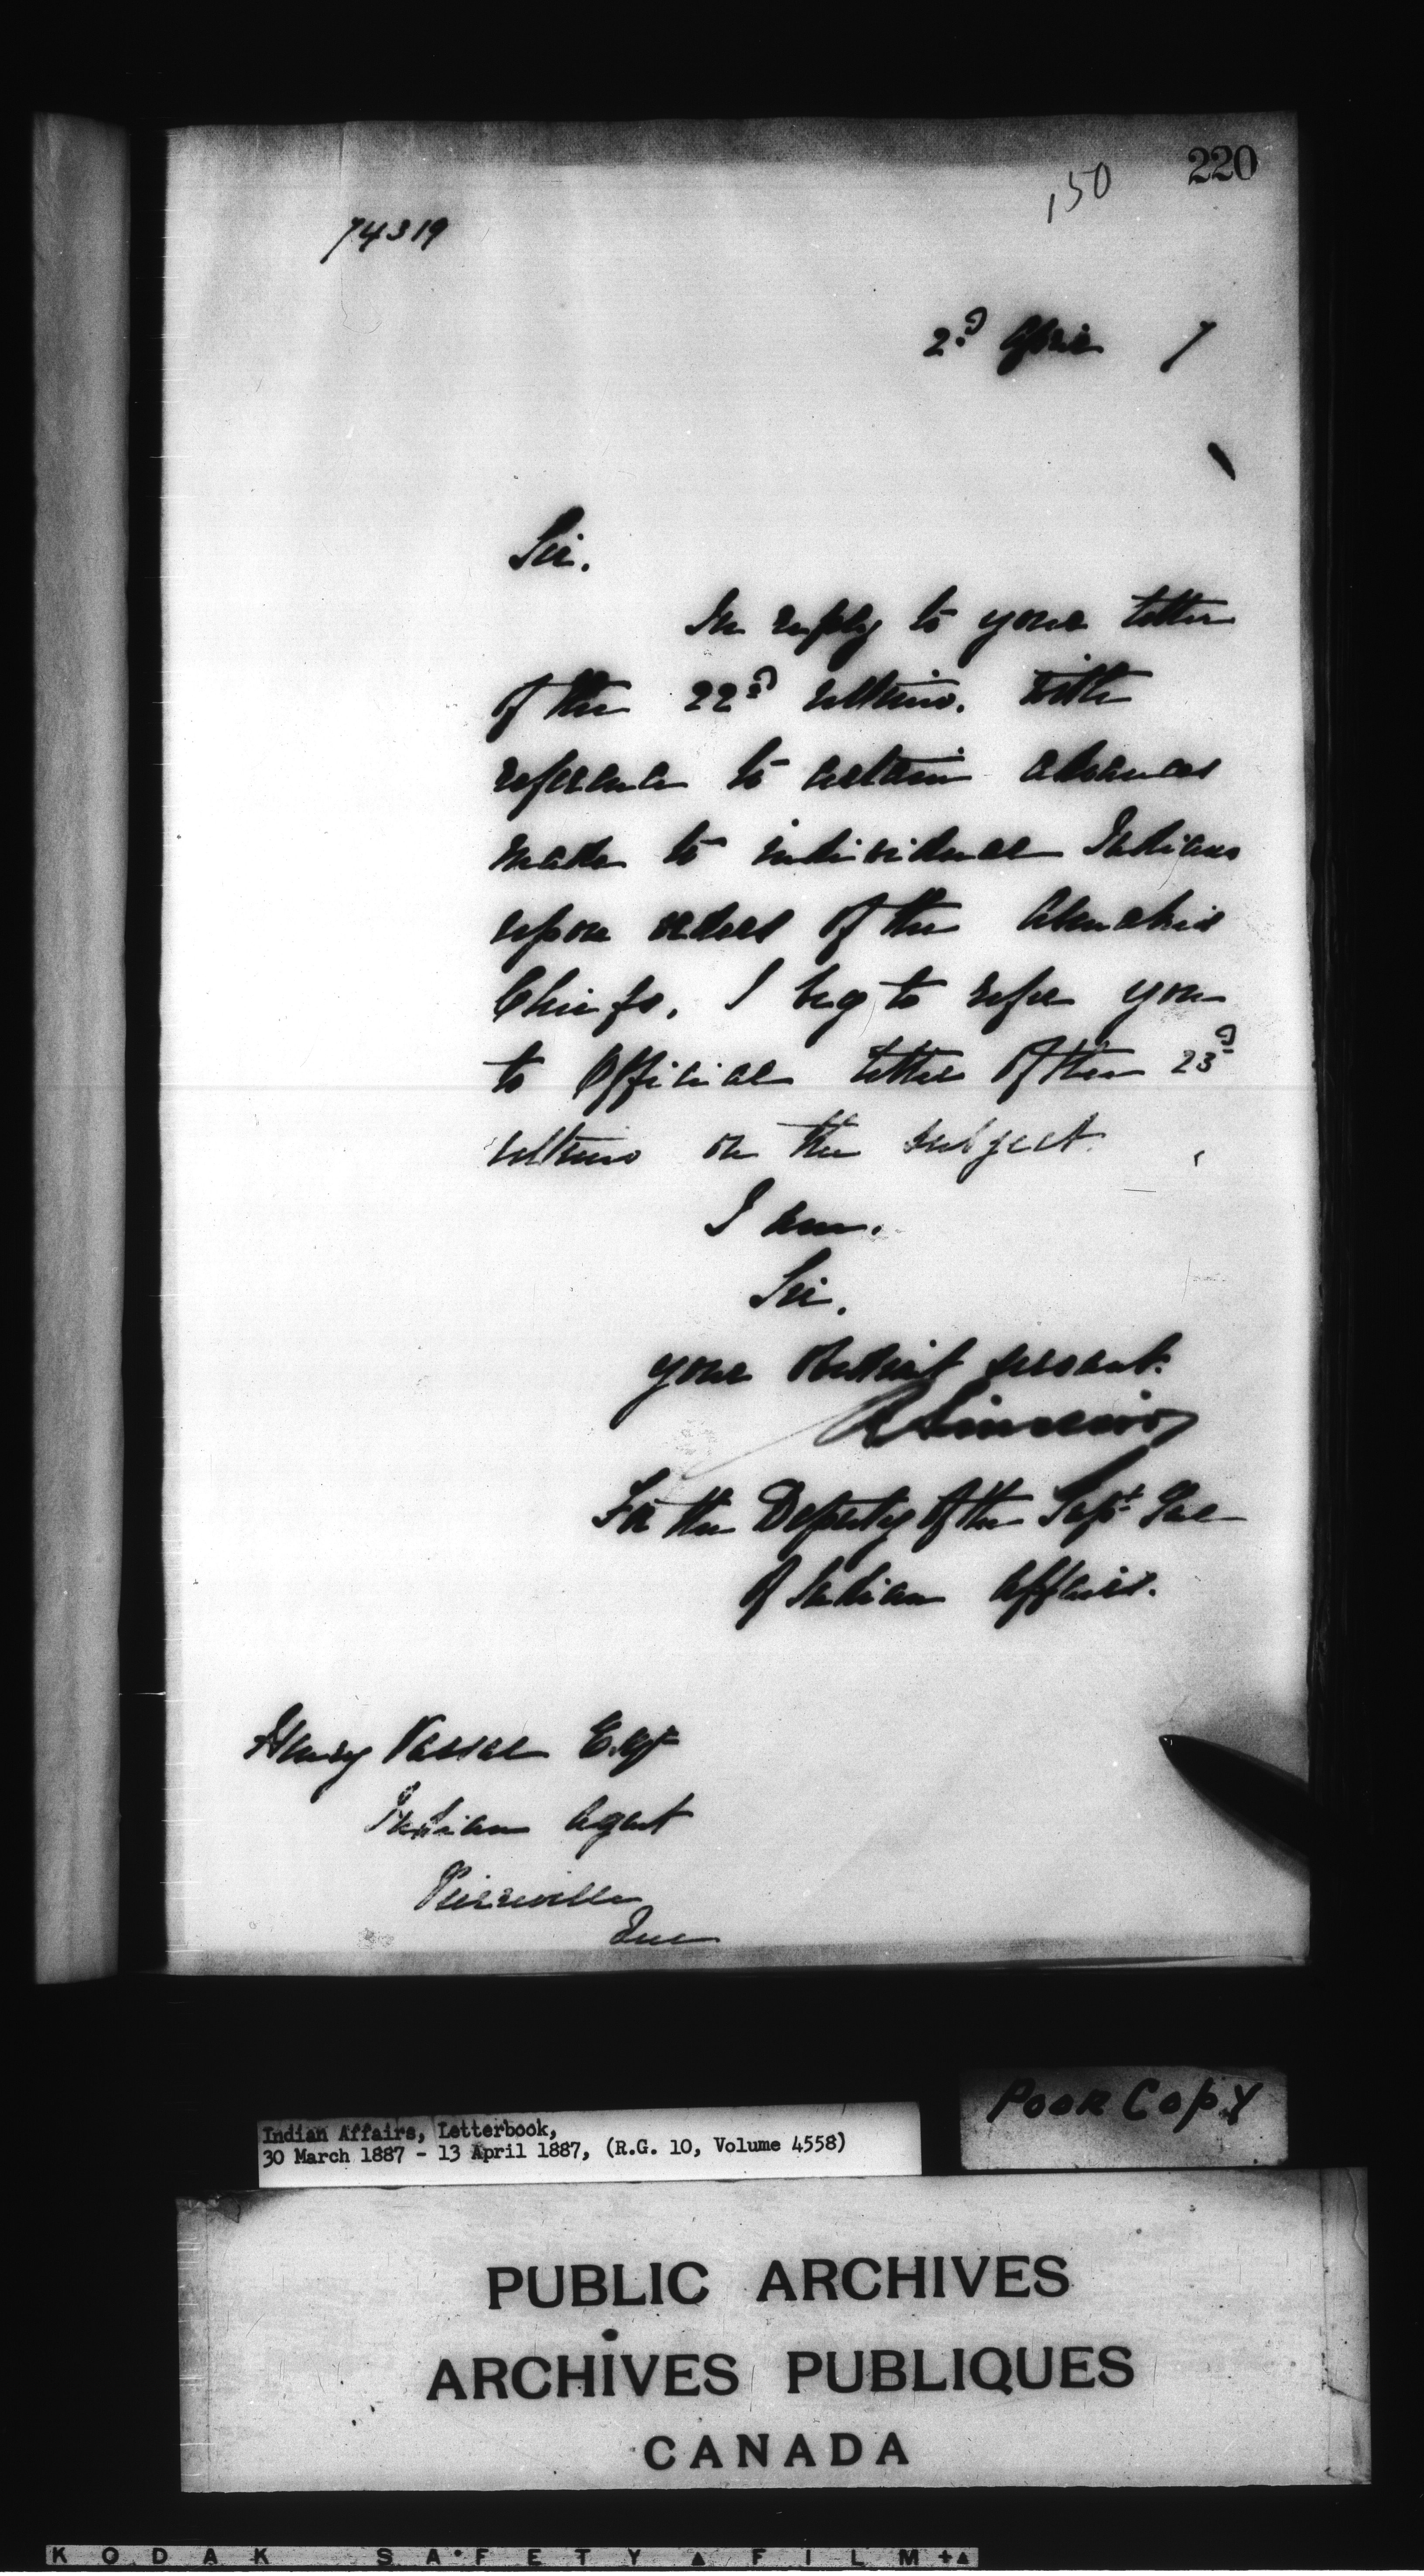 220
150
74319
2d April 7
Sir.
In reply to your letter
of the 22d ultimo, with
reference to certain advances
made to individual Indians
upon orders of the Abenakis
Chiefs, I beg to refer you
to Official letter of the 23d
ultimo on the subject.
I am.
Sir.
your obedient servant.
R Sinclair
For the Deputy of the Supt Gal
of Indian Affairs.
Henry Vassal Esqr
Indian Agent
Pierreville
Que
POOR COPY
Indian Affairs, Letterbook,
30 March 1887 - 13 April 1887, (R.G. 10, Volume 4558)
PUBLIC ARCHIVES
ARCHIVES PUBLIQUES
CANADA
KODAK SAFETY FILM